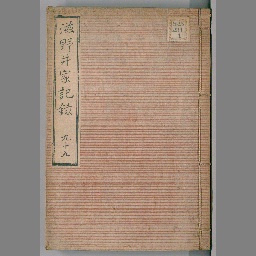 滋野井家記録 九十九